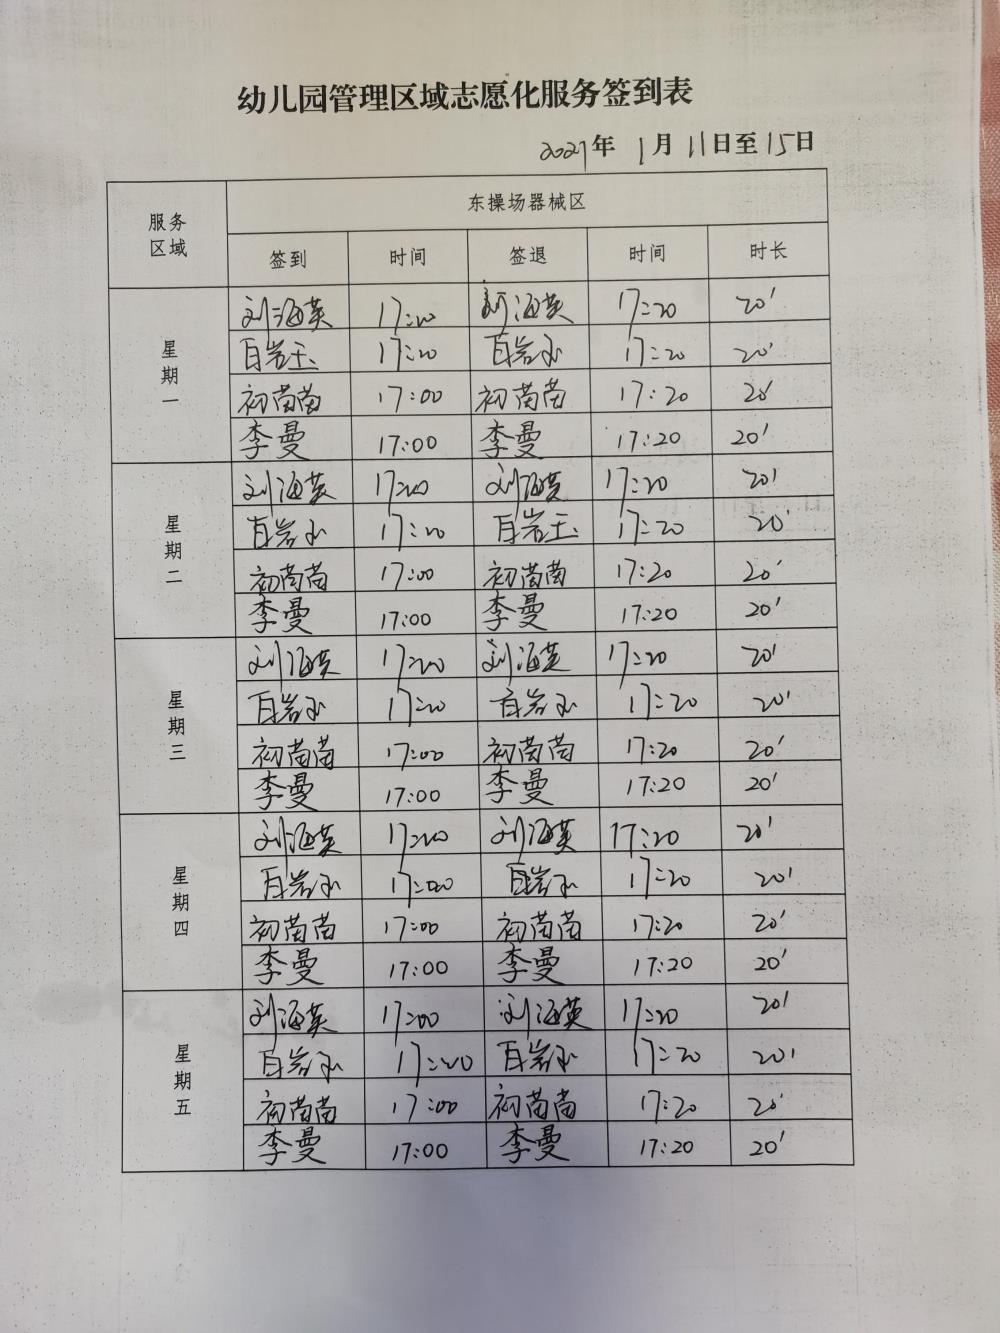 幼儿园管理区域志愿化服务签到表
2021年 1月 11日至15日
服务区域 东操场器械区
签到 时间 签退 时间 时长
星期一
刘海英 17:00 刘海英 17:20 20'
百岩玉 17:00 百岩玉 17:20 20'
初苗苗 17:00 初苗苗 17:20 20'
李曼 17:00 李曼 17:20 20'
星期二
刘海英 17:00 刘海英 17:20 20'
百岩玉 17:00 百岩玉 17:20 20'
初苗苗 17:00 初苗苗 17:20 20'
李曼 17:00 李曼 17:20 20'
星期三
刘海英 17:00 刘海英 17:20 20'
百岩玉 17:00 百岩玉 17:20 20'
初苗苗 17:00 初苗苗 17:20 20'
李曼 17:00 李曼 17:20 20'
星期四
刘海英 17:00 刘海英 17:20 20'
百岩玉 17:00 百岩玉 17:20 20'
初苗苗 17:00 初苗苗 17:20 20'
李曼 17:00 李曼 17:20 20'
星期五
刘海英 17:00 刘海英 17:20 20'
百岩玉 17:00 百岩玉 17:20 20'
初苗苗 17:00 初苗苗 17:20 20'
李曼 17:00 李曼 17:20 20'